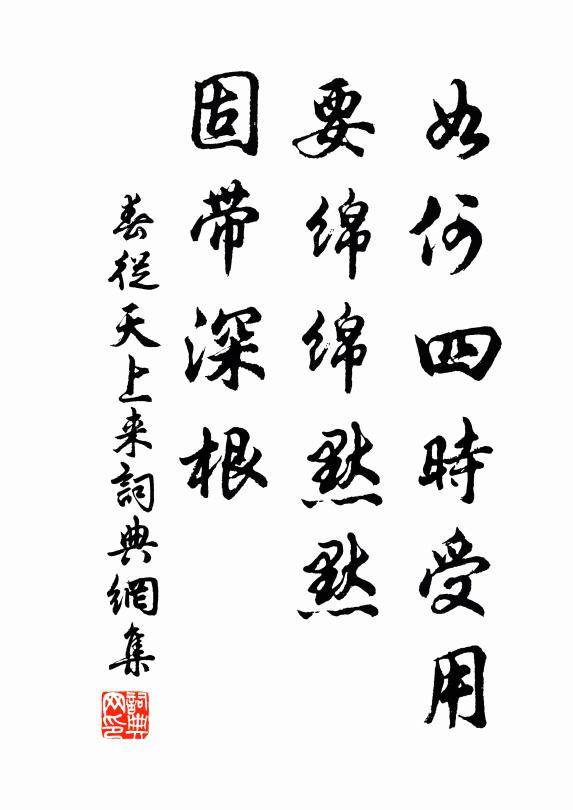 如何四時受用
要綿綿默默
固帶深根
春從天上来詞典網集
詞典
网印